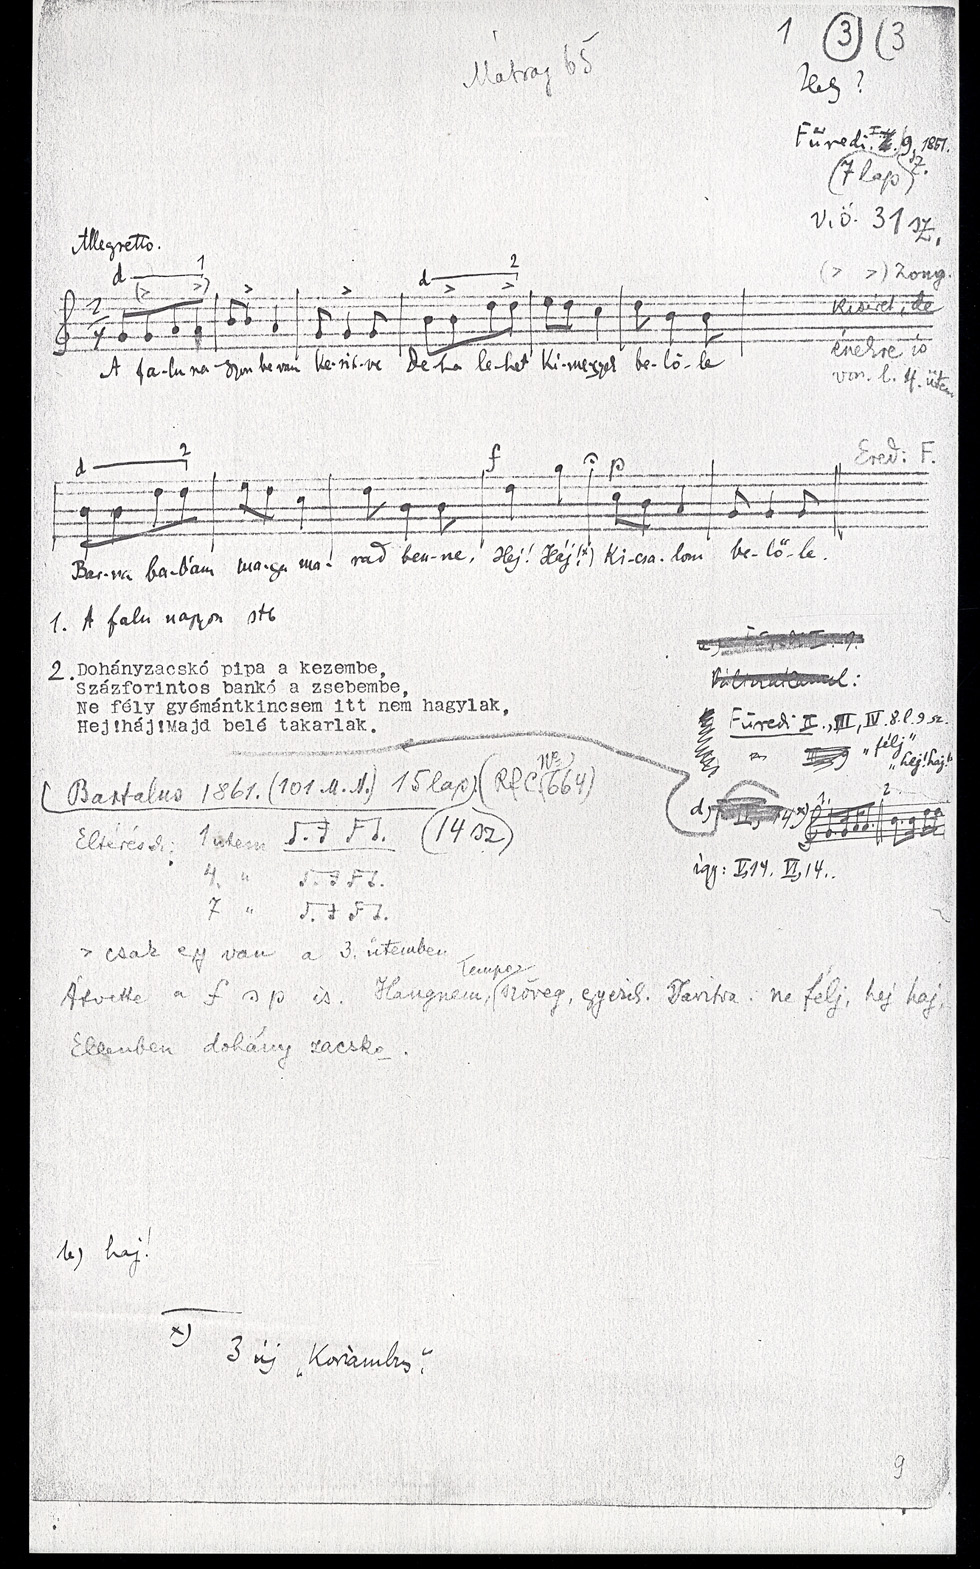 1 (3) (3
Mátray 65
Füredi I. 9. 1851.
(7 lap) sz.
v.ö. 31 sz.
Allegretto.
(> >) Zong.
d 1 d 2
kiséret, de
énekre is
von. l. 4. ütem
A fa-lu na-gyon be van ke-rit-ve De-ha le-het ki-me-gyek be-lő-le
Ered: F.
d 2 f p
Bar-na ba-bám ma-ga ma-rad ben-ne, Hej! Háj! x) Ki-csa-lom be-lő-le.
1. A falu nagyon stb
2. Dohányzacskó pipa a kezembe,
Százforintos bankó a zsebembe,
Ne fély gyémántkincsem itt nem hagylak,
Hej!háj!Majd belé takarlak.
Füredi II., III, IV. 8.l. 9 sz.
" "félj"
"hej! haj!"
Bartalus 1861. (101 M.N.) 15 lap) (RfC No 664)
Eltérések: 1 ütem (14 sz)
4. "
7 "
d) 1. 2
így: V,14. VI,14..
> csak egy van a 3. ütemben
Átvette a f s p is. Hangnem, tempo, szöveg, egyezik. Javitva: ne félj, hej haj,
Ellenben dohány zacsko.
b) haj!
x) 3 új "Koriambus"
9